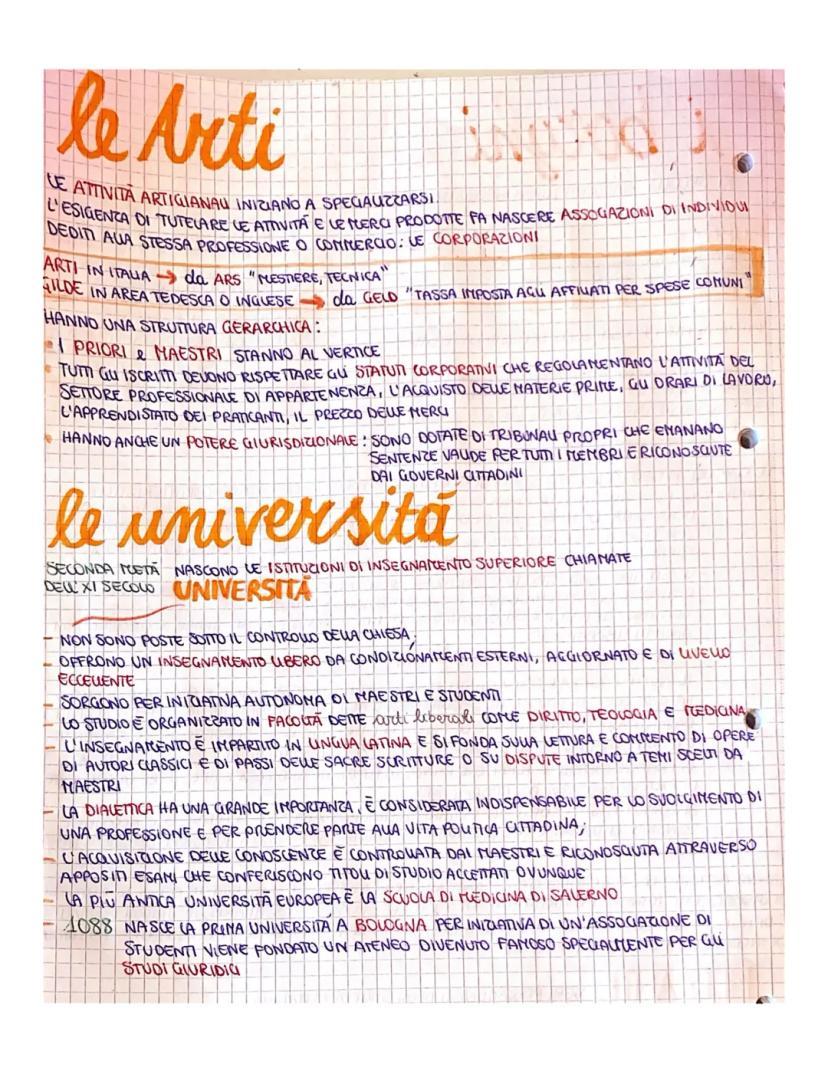 le Arti
LE ATTIVITÀ ARTIGIANALI INIZIANO A SPECIALIZZARSI.
L'ESIGENZA DI TUTELARE LE ATTIVITÁ E LE MERCI PRODOTTE FA NASCERE ASSOCIAZIONI DI INDIVIDUI
DEDITI ALLA STESSA PROFESSIONE O COMMERCIO: LE CORPORAZIONI
ARTI IN ITALIA → da ARS "MESTIERE, TECNICA"
GILDE IN AREA TEDESCA O INGLESE → da GELD "TASSA IMPOSTA AGLI AFFILIATI PER SPESE COMUNI"
HANNO UNA STRUTTURA GERARCHICA:
• I PRIORI e MAESTRI STANNO AL VERTICE
• TUTTI GLI ISCRITTI DEVONO RISPETTARE GLI STATUTI CORPORATIVI CHE REGOLAMENTANO L'ATTIVITÀ DEL
SETTORE PROFESSIONALE DI APPARTENENZA, L'ACQUISTO DELLE MATERIE PRIME, GLI ORARI DI LAVORO,
L'APPRENDISTATO DEI PRATICANTI, IL PREZZO DELLE MERCI
• HANNO ANCHE UN POTERE GIURISDIZIONALE: SONO DOTATE DI TRIBUNALI PROPRI CHE EMANANO
SENTENZE VALIDE PER TUTTI I MEMBRI E RICONOSCIUTE
DAI GOVERNI CITTADINI
le università
SECONDA METÀ NASCONO LE ISTITUZIONI DI INSEGNAMENTO SUPERIORE CHIAMATE
DELL'XI SECOLO UNIVERSITÀ
- NON SONO POSTE SOTTO IL CONTROLLO DELLA CHIESA;
- OFFRONO UN INSEGNAMENTO LIBERO DA CONDIZIONAMENTI ESTERNI, AGGIORNATO E DI LIVELLO
ECCELLENTE
- SORGONO PER INIZIATIVA AUTONOMA DI MAESTRI E STUDENTI
- LO STUDIO È ORGANIZZATO IN FACOLTÀ DETTE arti liberali COME DIRITTO, TEOLOGIA E MEDICINA
- L'INSEGNAMENTO È IMPARTITO IN LINGUA LATINA E SI FONDA SULLA LETTURA E COMMENTO DI OPERE
DI AUTORI CLASSICI E DI PASSI DELLE SACRE SCRITTURE O SU DISPUTE INTORNO A TEMI SCELTI DA
MAESTRI
- LA DIALETTICA HA UNA GRANDE IMPORTANZA, È CONSIDERATA INDISPENSABILE PER LO SVOLGIMENTO DI
UNA PROFESSIONE E PER PRENDERE PARTE ALLA VITA POLITICA CITTADINA;
- L'ACQUISIZIONE DELLE CONOSCENZE È CONTROLLATA DAI MAESTRI E RICONOSCIUTA ATTRAVERSO
APPOSITI ESAMI CHE CONFERISCONO TITOLI DI STUDIO ACCETTATI OVUNQUE
- LA PIÙ ANTICA UNIVERSITÀ EUROPEA È LA SCUOLA DI MEDICINA DI SALERNO
- 1088 NASCE LA PRIMA UNIVERSITÀ A BOLOGNA PER INIZIATIVA DI UN'ASSOCIAZIONE DI
STUDENTI VIENE FONDATO UN ATENEO DIVENUTO FAMOSO SPECIALMENTE PER GLI
STUDI GIURIDICI